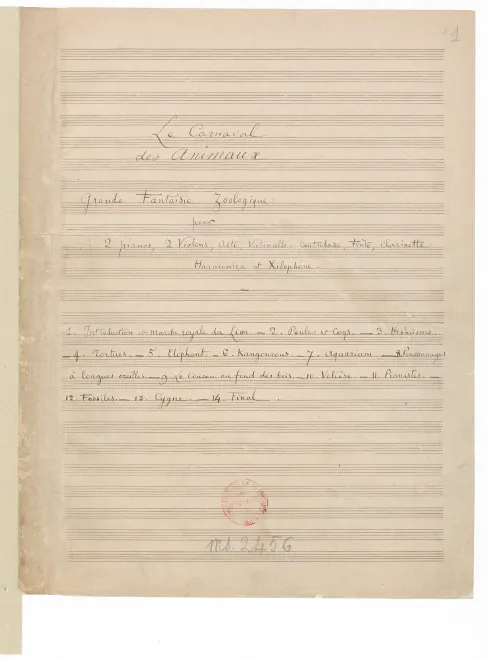 1
Le Carnaval
des Animaux
Grande Fantaisie Zoologique
pour
2 pianos, 2 Violons, Alto, Violoncelle, Contrebasse, Flûte, Clarinette
Harmonica et Xilophone.
1. Introduction et Marche royale du Lion — 2. Poules et Coqs. — 3. Hémiones.
— 4. Tortues. — 5. Eléphant — 6. Kangourous. — 7. Aquarium. — 8. Personnages
à longues oreilles. — 9. Le Coucou au fond des bois. — 10. Volière. — 11. Pianistes. —
12. Fossiles. — 13. Cygne. — 14. Final.
ms. 2456